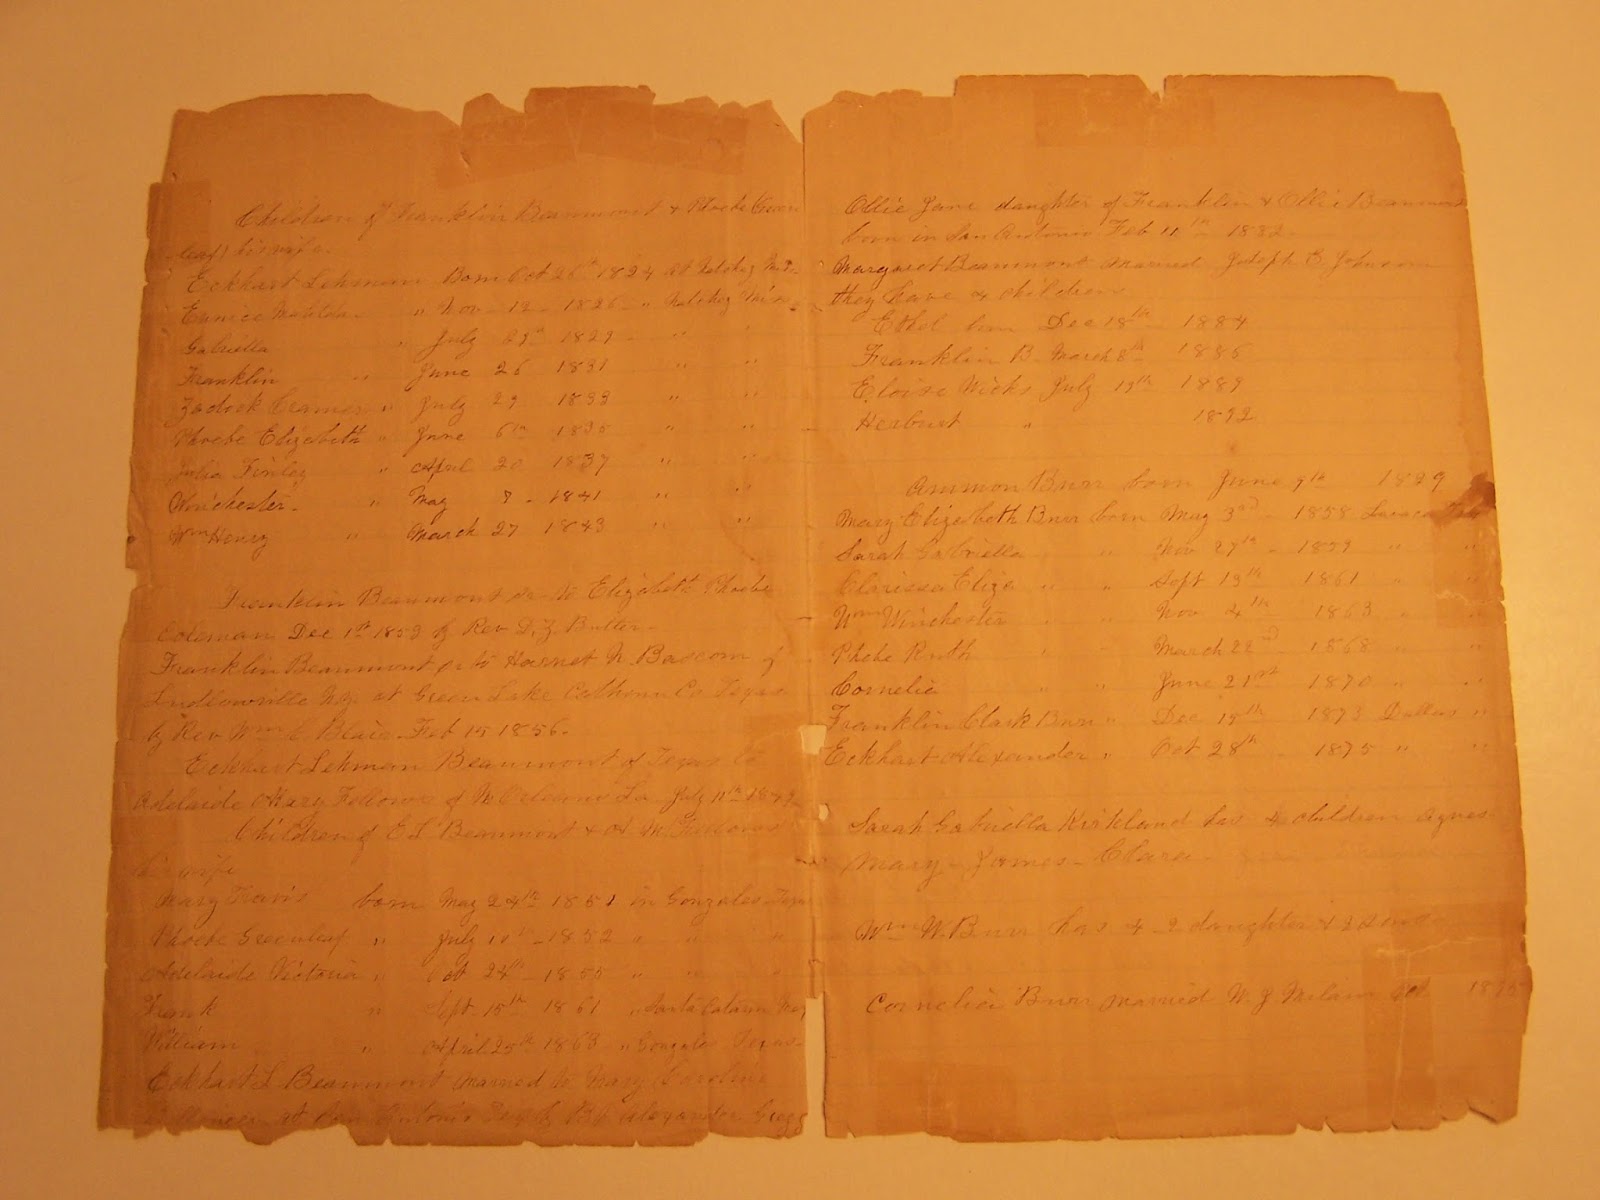 Children of Franklin Beaumont & Phoebe Green
leaf) his wife.
Eckhart Lehman Born Oct 26th 1824 at Natchez Miss
Eunice Matilda " Nov 12 - 1826 " Natchez Miss
Gabriella " July 1829 " "
Franklin " June 26 1831 " "
Zadock Cramer " July 29 1833 " "
Phoebe Elizabeth " June 6th 1835 " "
Julia Finley " April 20 1837 " "
Winchester - " May 7 - 1841 " "
Wm Henry " March 27 1843 " "
Franklin Beaumont to Elizabeth Phoebe
Coleman Dec 1st 1853 by Rev D. Z. Butler -
Franklin Beaumont to Harriet N. Bascom of
Ludlowville N.Y. at Green Lake Calhoun Co Texas
by Rev Wm C. Blair - Feb 15 1856.
Eckhart Lehman Beaumont of Texas to
Adelaide Mary Fellows of N Orleans La July 11th 1849
Children of E L Beaumont & A M Fellows
his wife
Mary Travis born May 24th 1851 in Gonzales Texas
Phoebe Greenleaf " July 10th - 1852 " " "
Adelaide Victoria " Oct 24th - 1855 " " "
Frank " Sept 15th 1861 " Santa Catarin
William " April 25th 1863 " Gonzales Texas -
Eckhart L Beaumont married to Mary Caroline
at San Antonio by Alexander Gregg
Ollie Jane daughter of Franklin & Ollie Beaumont
born in San Antonio Feb 11th - 1882 -
Margaret Beaumont married Joseph B. Johnson
they have 4 children
Ethel born Dec 18th - 1884
Franklin B. March 8th - 1886
Eloise Wicks July 19th 1889
Herbert " 1892
Ammon Burr born June 9th 1829
Mary Elizabeth Burr born May 3rd - 1858 Lavaca
Sarah Gabriella " " Nov 27th - 1859 " "
Clarissa Eliza " " Sept 13th 1861 " "
Wm Winchester " " Nov 4th 1863 " "
Phebe Ruth " " March 22nd - 1868 " "
Cornelia " " June 21st 1870 " "
Franklin Clark Burr " Dec 19th - 1873 Dallas "
Eckhart Alexander " Oct 28th - 1875 " "
Sarah Gabriella Kirkland has 4 children Agnes
Mary - James - Clara -
Wm W. Burr has 4 - 2 daughter & 2 sons
Cornelia Burr married W. J. Milam Oct